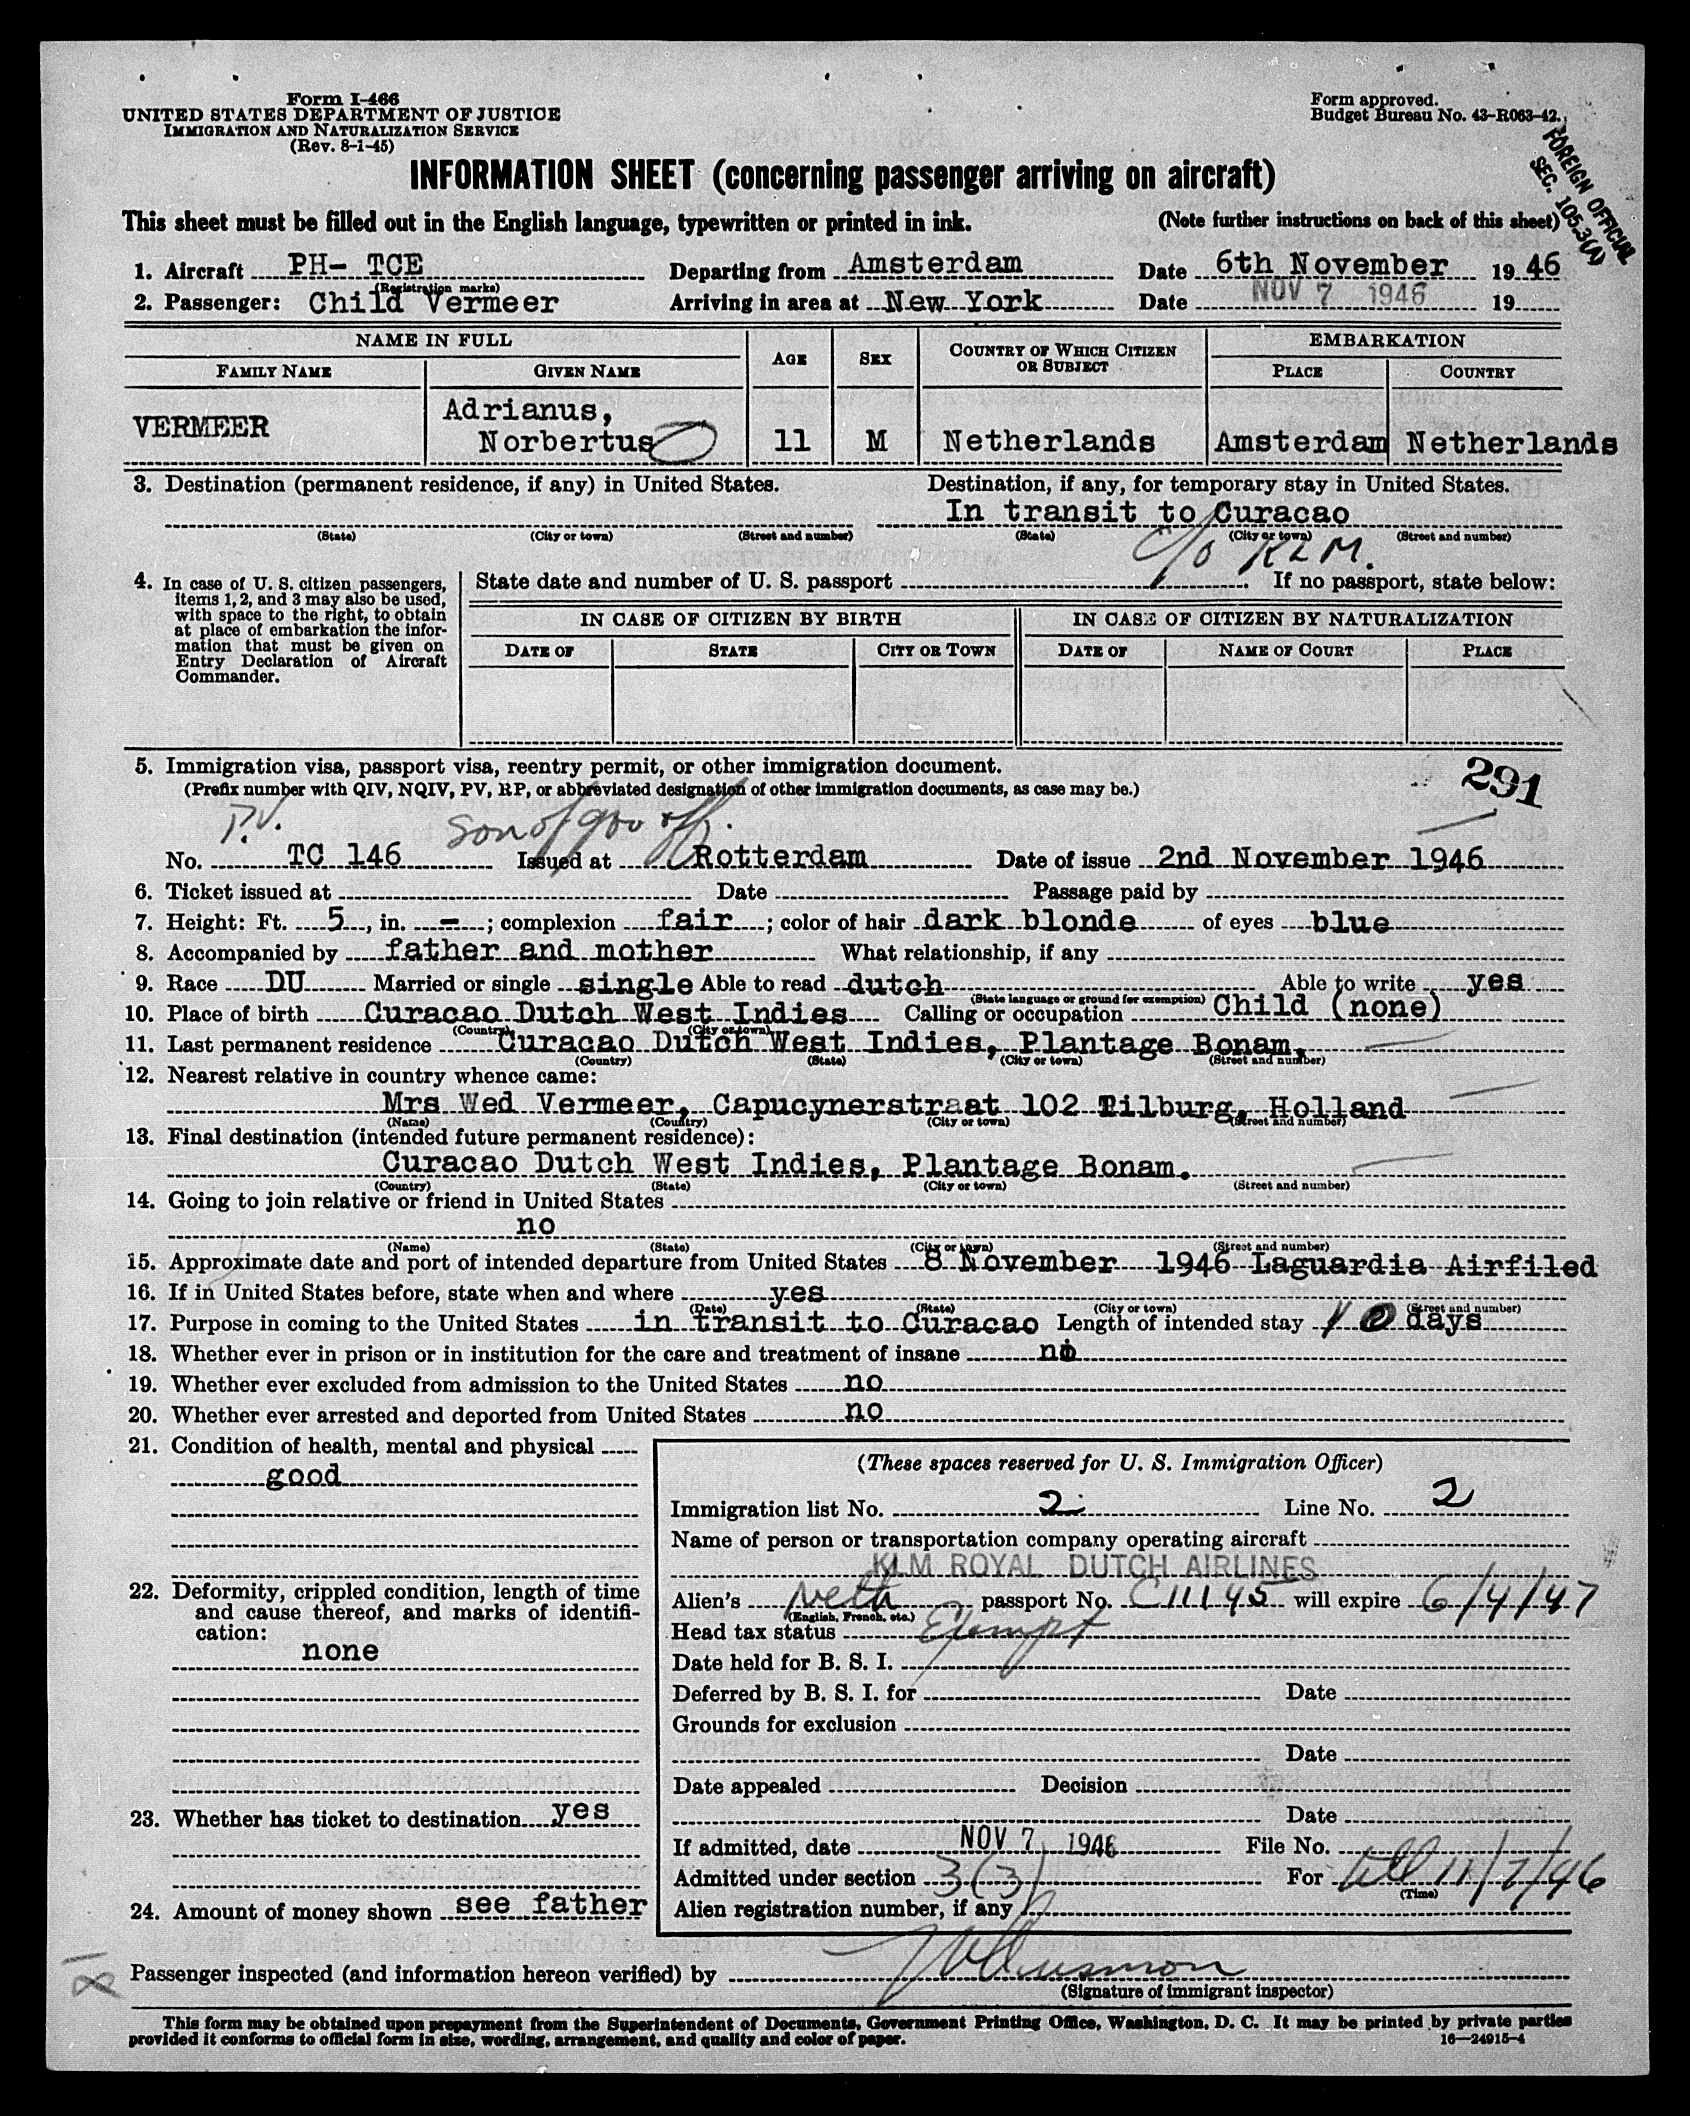 Form I-466
UNITED STATES DEPARTMENT OF JUSTICE
IMMIGRATION AND NATURALIZATION SERVICE
(Rev. 8-1-45)
Form approved.
Budget Bureau No. 43-R063-42.
FOREIGN OFFICIAL
SEC. 105.3(A)
INFORMATION SHEET (concerning passenger arriving on aircraft)
This sheet must be filled out in the English language, typewritten or printed in ink. (Note further instructions on back of this sheet)
1. Aircraft PH- TCE Departing from Amsterdam Date 6th November 19 46
(Registration marks)
2. Passenger: Child Vermeer Arriving in area at New York Date NOV 7 1946 19
NAME IN FULL AGE SEX COUNTRY OF WHICH CITIZEN OR SUBJECT EMBARKATION
FAMILY NAME GIVEN NAME PLACE COUNTRY
VERMEER Adrianus, Norbertus 11 M Netherlands Amsterdam Netherlands
3. Destination (permanent residence, if any) in United States. Destination, if any, for temporary stay in United States.
In transit to Curacao
(State) (City or town) (Street and number) (State) (City or town) (Street and number)
c/o KLM.
4. In case of U. S. citizen passengers, items 1, 2, and 3 may also be used, with space to the right, to obtain at place of embarkation the information that must be given on Entry Declaration of Aircraft Commander.
State date and number of U. S. passport . If no passport, state below:
IN CASE OF CITIZEN BY BIRTH IN CASE OF CITIZEN BY NATURALIZATION
DATE OF STATE CITY OR TOWN DATE OF NAME OF COURT PLACE
5. Immigration visa, passport visa, reentry permit, or other immigration document.
(Prefix number with QIV, NQIV, PV, RP, or abbreviated designation of other immigration documents, as case may be.)
291
P.V. son of gov off.
No. TC 146 Issued at Rotterdam Date of issue 2nd November 1946
6. Ticket issued at Date Passage paid by
7. Height: Ft. 5, in. -; complexion fair; color of hair dark blonde of eyes blue
8. Accompanied by father and mother What relationship, if any
9. Race DU Married or single single Able to read dutch Able to write yes
(State language or ground for exemption)
10. Place of birth Curacao Dutch West Indies Calling or occupation Child (none)
(Country) (City or town)
11. Last permanent residence Curacao Dutch West Indies, Plantage Bonam,
(Country) (State) (City or town) (Street and number)
12. Nearest relative in country whence came:
Mrs Wed Vermeer, Capucynerstraat 102 Tilburg, Holland
(Name) (Country) (City or town) (Street and number)
13. Final destination (intended future permanent residence):
Curacao Dutch West Indies, Plantage Bonam.
(Country) (State) (City or town) (Street and number)
14. Going to join relative or friend in United States
no
(Name) (State) (City or town) (Street and number)
15. Approximate date and port of intended departure from United States 8 November 1946 Laguardia Airfiled
16. If in United States before, state when and where yes
(Date) (State) (City or town) (Street and number)
17. Purpose in coming to the United States in transit to Curacao Length of intended stay days
18. Whether ever in prison or in institution for the care and treatment of insane no
19. Whether ever excluded from admission to the United States no
20. Whether ever arrested and deported from United States no
21. Condition of health, mental and physical
good
22. Deformity, crippled condition, length of time and cause thereof, and marks of identification:
none
23. Whether has ticket to destination yes
24. Amount of money shown see father
(These spaces reserved for U. S. Immigration Officer)
Immigration list No. 2 Line No. 2
Name of person or transportation company operating aircraft
KLM ROYAL DUTCH AIRLINES
Alien's Neth passport No. C11145 will expire 6/4/47
(English, French, etc.)
Head tax status Exempt
Date held for B. S. I.
Deferred by B. S. I. for Date
Grounds for exclusion
Date
Date appealed Decision
Date
If admitted, date NOV 7 1946 File No.
Admitted under section 3(3) For till 11/7/46
(Time)
Alien registration number, if any
18
Passenger inspected (and information hereon verified) by
(Signature of immigrant inspector)
This form may be obtained upon prepayment from the Superintendent of Documents, Government Printing Office, Washington, D. C. It may be printed by private parties
provided it conforms to official form in size, wording, arrangement, and quality and color of paper.
16—24915-4